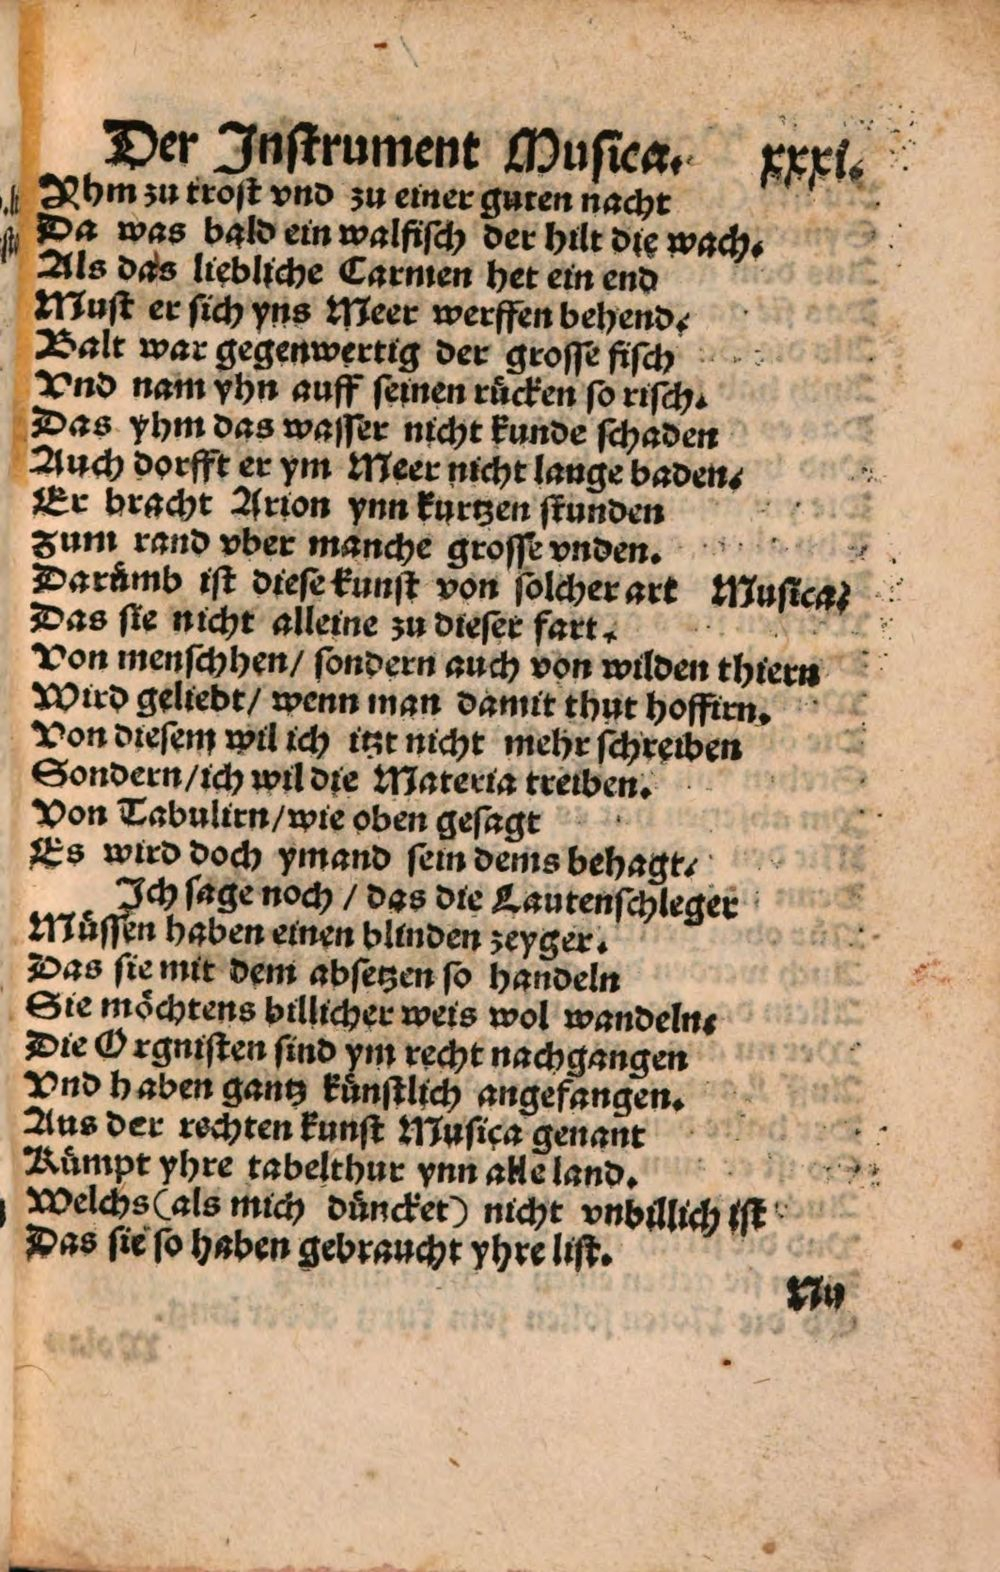 Der Instrument Musica. xxxi.
Yhm zu trost vnd zu einer guten nacht
Da was bald ein walfisch der hilt die wach.
Als das liebliche Carmen het ein end
Must er sich yns Meer werffen behend.
Balt war gegenwertig der grosse fisch
Vnd nam yhn auff seinen rücken so risch.
Das yhm das wasser nicht kunde schaden
Auch dorfft er ym Meer nicht lange baden.
Er bracht Arion ynn kurtzen stunden
zum rand vber manche grosse vnden.
Darümb ist diese kunst von solcher art Musica.
Das sie nicht alleine zu dieser fart.
Von menschhen/ sondern auch von wilden thiern
Wird geliebt/ wenn man damit thut hoffirn.
Von diesem wil ich itzt nicht mehr schreiben
Sondern/ich wil die Materia treiben.
Von Tabulirn/wie oben gesagt
Es wird doch ymand sein dems behagt.
Ich sage noch / das die Lautenschleger
Müssen haben einen blinden zeyger.
Das sie mit dem absetzen so handeln
Sie möchtens billicher weis wol wandeln.
Die Orgnisten sind ym recht nachgangen
Vnd haben gantz künstlich angefangen.
Aus der rechten kunst Musica genant
Kümpt yhre tabelthur ynn alle land.
Welchs (als mich düncket) nicht vnbillich ist
Das sie so haben gebraucht yhre list.
Nu